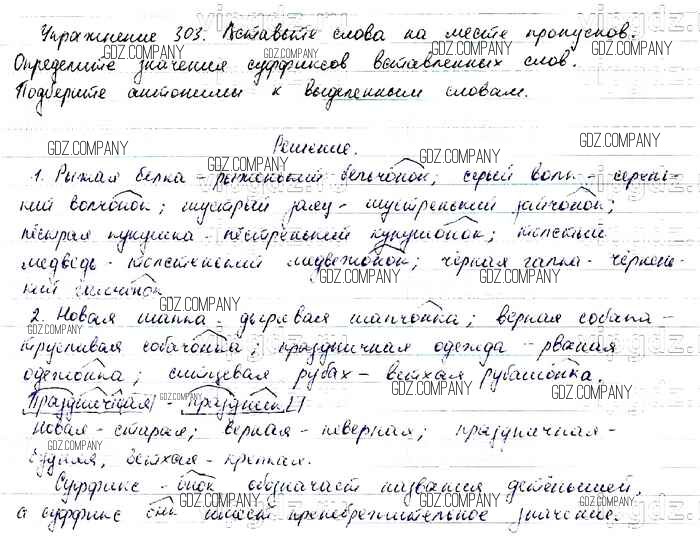 Упражнение 303. Вставьте слова на месте пропусков.
Определите значения суффиксов вставленных слов.
Подберите антонимы к выделенным словам.
Решение.
1. Рыжая белка - рыженький бельчонок; серый волк - серень-
кий волчонок; шустрый заяц - шустренький зайчонок;
пёстрая кукушка - пёстренький кукушонок; толстый
медведь - толстенький медвежонок; чёрная галка - чёрнень-
кий галчонок
2. Новая шапка - дырявая шапчонка; верная собака -
трусливая собачонка; праздничная одежда - рваная
одежонка; ситцевая рубах - ветхая рубашонка.
Праздничная - праздник
Новая - старая; верная - неверная; праздничная -
будняя, ветхая - крепкая.
Суффикс - онок обозначает названия детёнышей,
а суффикс онк имеет пренебрежительное значение.